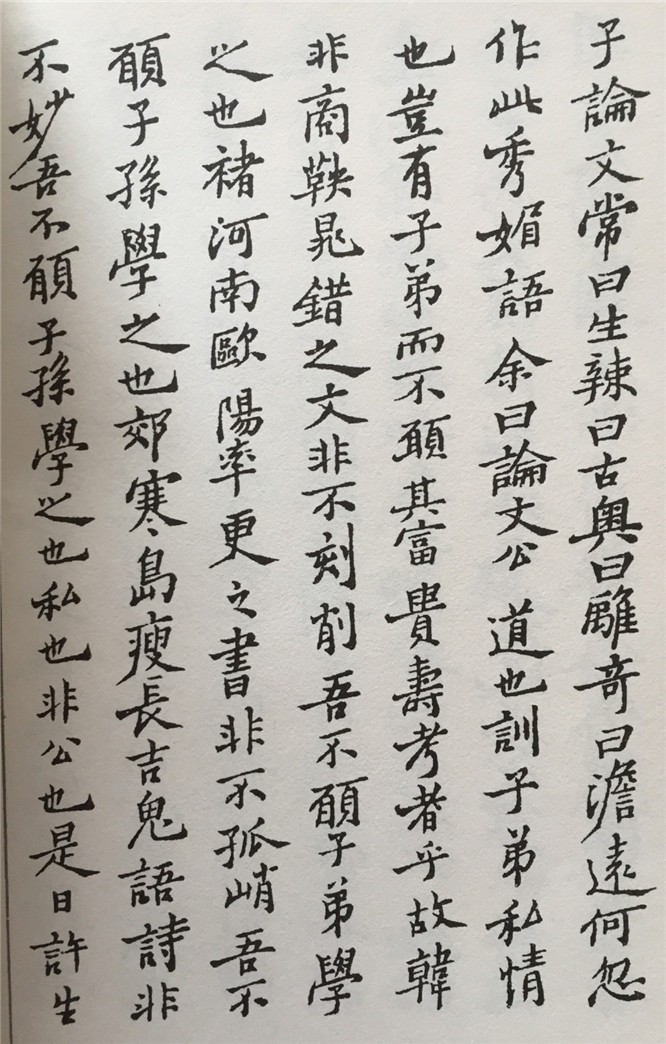 子論文常曰生辣曰古奧曰離奇曰澹遠何忽
作此秀媚語余曰論文公道也訓子弟私情
也豈有子弟而不願其富貴壽考者乎故韓
非商鞅晁錯之文非不刻削吾不願子弟學
之也褚河南歐陽率更之書非不孤峭吾不
願子孫學之也郊寒島瘦長吉鬼語詩非
不妙吾不願子孫學之也私也非公也是日許生